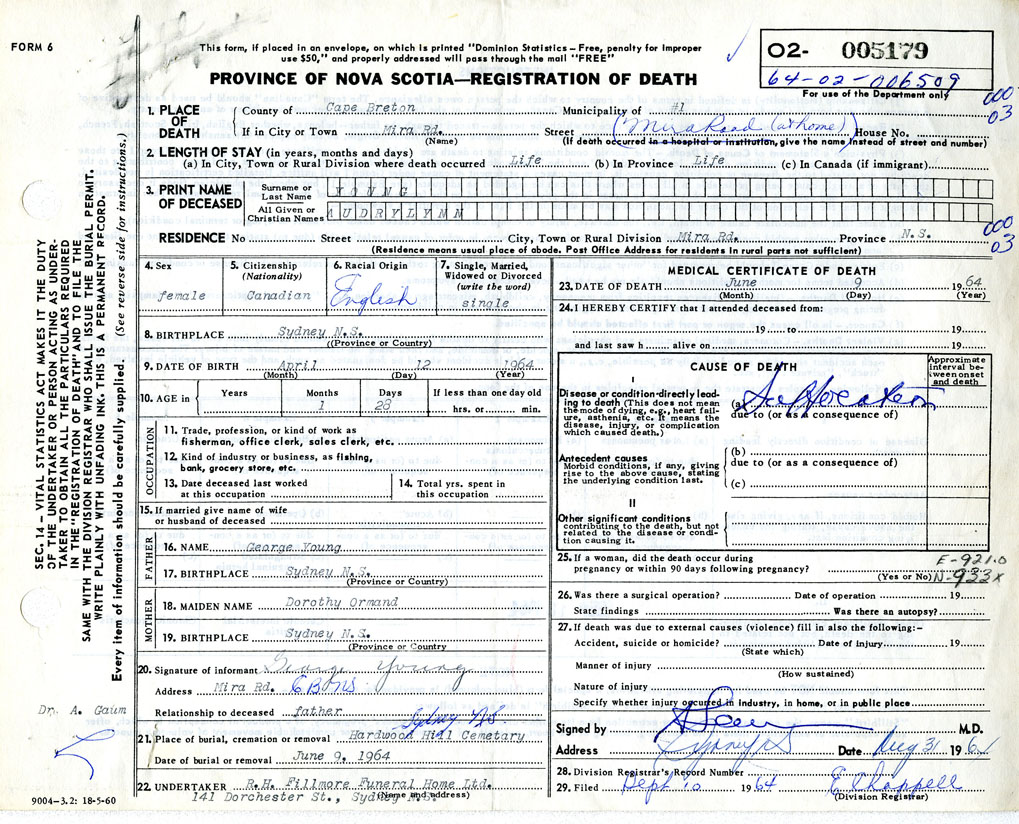 FORM 6
This form, if placed in an envelope, on which is printed "Dominion Statistics – Free, penalty for improper
use $50," and properly addressed will pass through the mail "FREE"
PROVINCE OF NOVA SCOTIA—REGISTRATION OF DEATH
02- 005179
64-02-006509
For use of the Department only
000
03
1. PLACE OF DEATH
County of Cape Breton Municipality of #1
If in City or Town Mira Rd. Street (Mira Road (at home)) House No.
(Name) (If death occurred in a hospital or institution, give the name instead of street and number)
2. LENGTH OF STAY (in years, months and days)
(a) In City, Town or Rural Division where death occurred Life (b) In Province Life (c) In Canada (if immigrant)
3. PRINT NAME OF DECEASED
Surname or Last Name YOUNG
All Given or Christian Names AUDRYLYNN
000
03
RESIDENCE No Street City, Town or Rural Division Mira Rd. Province N.S.
(Residence means usual place of abode. Post Office Address for residents in rural parts not sufficient)
4. Sex
female
5. Citizenship
(Nationality)
Canadian
6. Racial Origin
English
7. Single, Married,
Widowed or Divorced
(write the word)
single
8. BIRTHPLACE Sydney N.S.
(Province or Country)
9. DATE OF BIRTH April 12 1964
(Month) (Day) (Year)
10. AGE in
Years Months Days If less than one day old
1 28 hrs. or min.
OCCUPATION
11. Trade, profession, or kind of work as
fisherman, office clerk, sales clerk, etc.
12. Kind of industry or business, as fishing,
bank, grocery store, etc.
13. Date deceased last worked
at this occupation
14. Total yrs. spent in
this occupation
15. If married give name of wife
or husband of deceased
FATHER
16. NAME George Young
17. BIRTHPLACE Sydney N.S.
(Province or Country)
MOTHER
18. MAIDEN NAME Dorothy Ormand
19. BIRTHPLACE Sydney N.S.
(Province or Country
20. Signature of informant George Young
Address Mira Rd. CB NS
Relationship to deceased father
Sydney NS
21. Place of burial, cremation or removal Hardwood Hill Cemetary
Date of burial or removal June 9, 1964
22. UNDERTAKER R.H. Fillmore Funeral Home Ltd.
(Name and address)
141 Dorchester St., Sydney N.S.
MEDICAL CERTIFICATE OF DEATH
23. DATE OF DEATH June 9 1964
(Month) (Day) (Year)
24. I HEREBY CERTIFY that I attended deceased from:
19 to 19
and last saw h alive on 19
CAUSE OF DEATH
Approximate
interval be-
tween onset
and death
I
Disease or condition directly lead-
ing to death (This does not mean
the mode of dying, e.g., heart fail-
ure, asthenia, etc. It means the
disease, injury, or complication
which caused death.)
(a) Suffocation
due to (or as a consequence of)
Antecedent causes
Morbid conditions, if any, giving
rise to the above cause, stating
the underlying condition last.
(b)
due to (or as a consequence of)
(c)
II
Other significant conditions
contributing to the death, but not
related to the disease or condi-
tion causing it.
25. If a woman, did the death occur during
pregnancy or within 90 days following pregnancy?
(Yes or No)
E-921.0
N-933x
26. Was there a surgical operation? Date of operation 19
State findings Was there an autopsy?
27. If death was due to external causes (violence) fill in also the following:–
Accident, suicide or homicide? Date of injury 19
(State which)
Manner of injury
(How sustained)
Nature of injury
Specify whether injury occurred in industry, in home, or in public place
Signed by M.D.
Address Sydney NS Date Aug 31 196
28. Division Registrar's Record Number
29. Filed Sept 10 1964 E Chappell
(Division Registrar)
SEC. 14 – VITAL STATISTICS ACT MAKES IT THE DUTY
OF THE UNDERTAKER OR PERSON ACTING AS UNDER-
TAKER TO OBTAIN ALL THE PARTICULARS REQUIRED
IN THE "REGISTRATION OF DEATH" AND TO FILE THE
SAME WITH THE DIVISION REGISTRAR WHO SHALL ISSUE THE BURIAL PERMIT.
WRITE PLAINLY WITH UNFADING INK. THIS IS A PERMANENT RECORD.
Every item of information should be carefully supplied. (See reverse side for instructions.)
Dr. A. Gaum
9004–3.2: 18-5-60